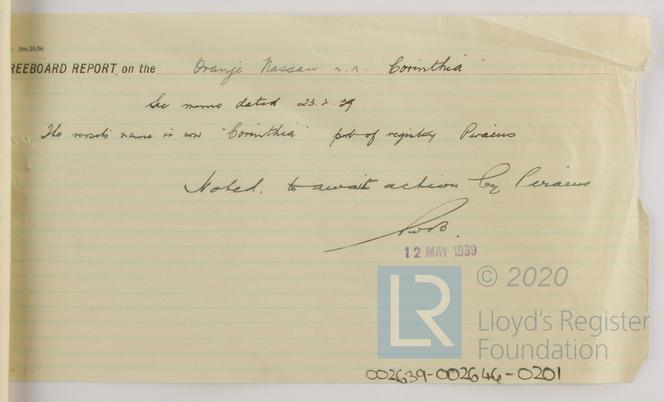 REEBOARD REPORT on the Oranje Nassau n.n. Corinthia
See memo dated 23.2.39
The vessels name is now "Corinthia" port of registry Piraeus
Noted. to await action by Piraeus
12 MAY 1939
LR
© 2020
Lloyd's Register
Foundation
002639-002646-0201